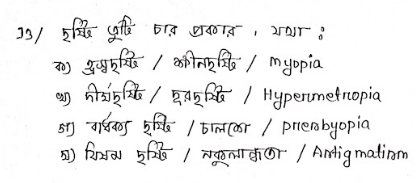 ১১/ দৃষ্টি ত্রুটি চার প্রকার , যথা :
ক) হ্রস্বদৃষ্টি / ক্ষীনদৃষ্টি / myopia
খ) দীর্ঘদৃষ্টি / দূরদৃষ্টি / Hypermetropia
গ) বার্ধক্য দৃষ্টি / চালশে / presbyopia
ঘ) বিষম দৃষ্টি / নকুলান্ধতা / Astigmatism